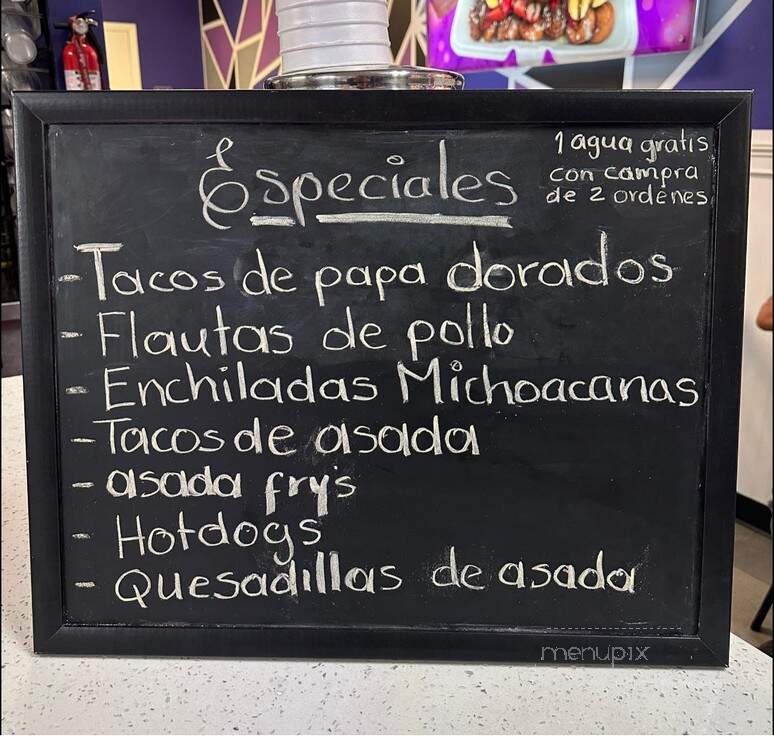 Especiales
1 agua gratis
con campra
de 2 ordenes
- Tacos de papa dorados
- Flautas de pollo
- Enchiladas Michoacanas
- Tacos de asada
- asada fry's
- Hotdogs
- Quesadillas de asada
menupix